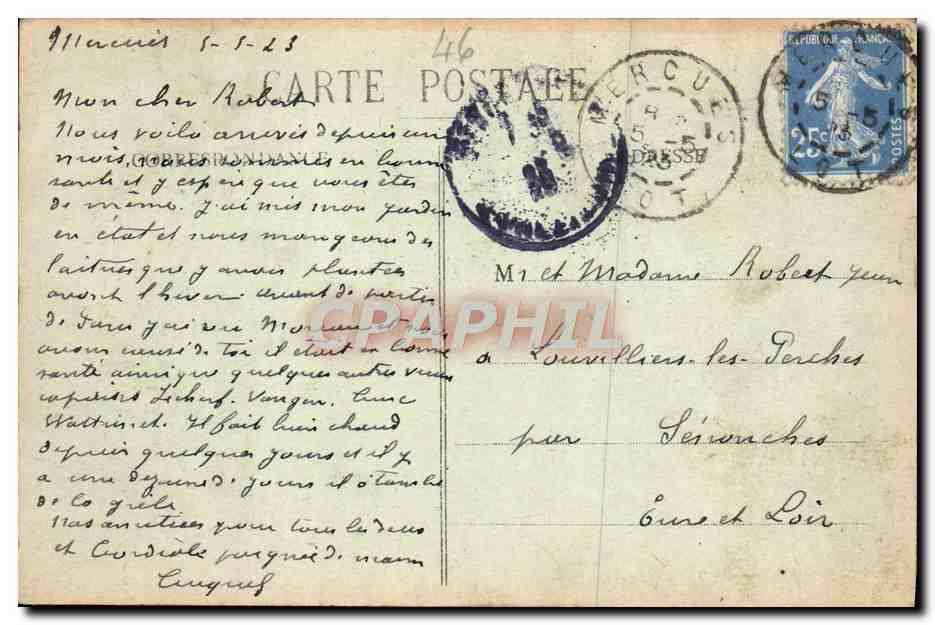 Mercuès 5-5-23
46
CARTE POSTALE
Mon cher Robert
Nous voilà arrivés depuis un
mois, nous sommes en bonne
CORRESPONDANCE
santé et j'espère que vous êtes
de même. J'ai mis mon jardin
en état et nous mangeons des
laitues que j'avais plantées
avant l'hiver avant de partir
de Paris j'ai vu
avons causé de toi il était en bonne
santé ainsi que quelques autres vieux
copains
Il fait bien chaud
depuis quelques jours et il y
a une dizaine de jours il a tombé
de la grêle
Nos amitiés pour tous les deux
et Cordiale poignée de main
MERCUES
LOT
ADRESSE
MERCUES
LOT
REPUBLIQUE FRANÇAISE
25c
POSTES
Mr et Madame Robert Jean
à Louvilliers-les-Perches
par Sénonches
Eure et Loir
CPAPHIL